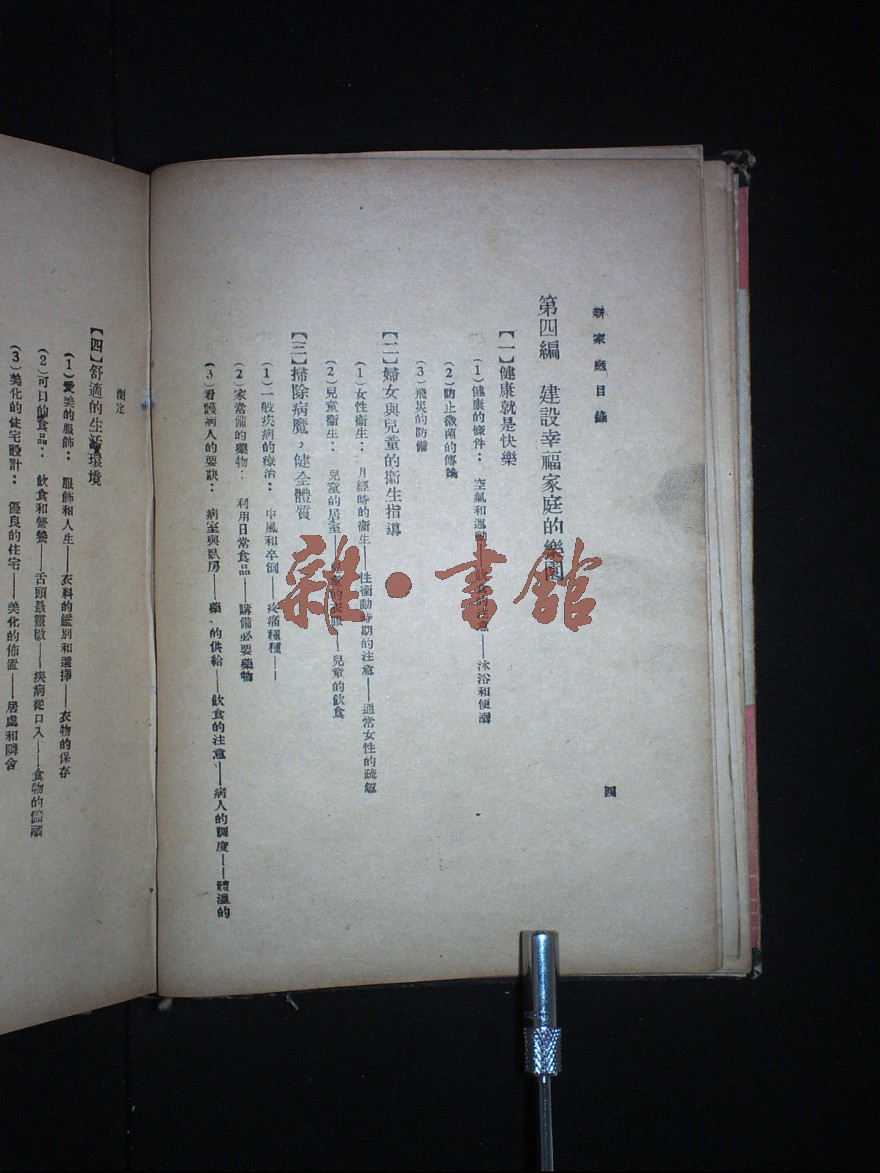 新家庭目錄
四
第四編　建設幸福家庭的樂園
【一】健康就是快樂
(1)健康的條件：　空氣和運動——飲食的注意——沐浴和便溺
(2)防止微菌的傳
(3)飛災的防備
【二】婦女與兒童的衞生指導
(1)女性衞生：　月經時的衞生——性衝動時期的注意——通常女性的疏
(2)兒童衞生：　兒童的居室——兒童的衣服——兒童的飲食
【三】掃除病魔，健全體質
(1)一般疾病的療治：　中風和卒倒——疼痛種種——
(2)家常備的藥物：　利用日常食品——購備必要藥物
(3)看護病人的要訣：　病室與臥房——藥、的供給——飲食的注意——病人的調度——體溫的
測定
【四】舒適的生活環境
(1)愛美的服飾：　服飾和人生——衣料的鑑別和選擇——衣物的保存
(2)可口的食品：　飲食和營養——舌頭最靈敏——疾病從口入——食物的
(3)美化的住宅設計：　優良的住宅——美化的佈置——居處和隣舍
雜·書館